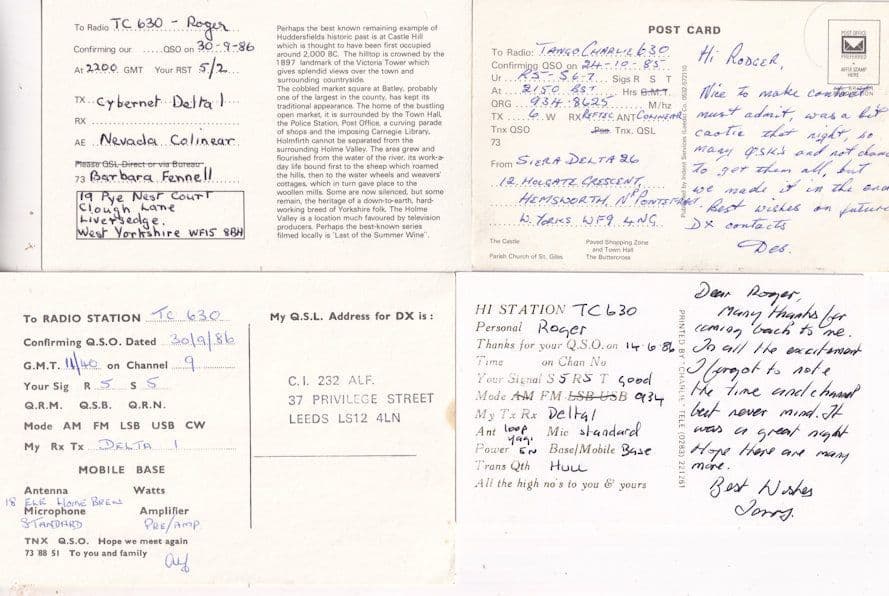 To Radio TC 630 - Roger
Confirming our ......QSO on 30-9-86
At 2200 GMT Your RST 5/2
TX Cybernet Delta 1
RX
AE Nevada Colinear
Please QSL Direct or via Bureau
73 Barbara Fennell
19 Pye Nest Court
Clough Lane
Liversedge.
West Yorkshire WF15 8BH
Perhaps the best known remaining example of
Huddersfields historic past is at Castle Hill
which is thought to have been first occupied
around 2,000 BC. The hilltop is crowned by the
1897 landmark of the Victoria Tower which
gives splendid views over the town and
surrounding countryside.
The cobbled market square at Batley, probably
one of the largest in the county, has kept its
traditional appearance. The home of the bustling
open market, it is surrounded by the Town Hall,
the Police Station, Post Office, a curving parade
of shops and the imposing Carnegie Library,
Holmfirth cannot be separated from the
surrounding Holme Valley. The area grew and
flourished from the water of the river, its work-a-
day life bound first to the sheep which roamed
the hills, then to the water wheels and weavers'
cottages, which in turn gave place to the
woollen mills. Some are now silenced, but some
remain, the heritage of a down-to-earth, hard-
working breed of Yorkshire folk. The Holme
Valley is a location much favoured by television
producers. Perhaps the best-known series
filmed locally is 'Last of the Summer Wine'.
POST CARD
POST OFFICE
PREFERRED
AFFIX STAMP
HERE
To Radio: TANGO CHARLIE 630
Confirming QSO on 24-10-85
Ur R5-S6-7 Sigs R S T
At 2150 BST Hrs G.M.T.
QRG 934.8625 M/hz
TX 6 W RX REFTEC ANT
Tnx QSO Pse Tnx. QSL
73
From SIERA DELTA 26
12, HOLGATE CRESCENT,
HEMSWORTH, NR PONTEFRACT
W. YORKS WF9 4NG
The Castle
Parish Church of St. Giles
Paved Shopping Zone
and Town Hall
The Buttercross
Hi RODGER,
Nice to make contact
must admit, was a bit
that night, so
many and not chance
to get them all, but
we made it in the end
Best wishes on future
DX contacts
Des.
To RADIO STATION TC 630
Confirming Q.S.O. Dated 30/9/86
G.M.T. 11/40 on Channel 9
Your Sig R 5 S 5
Q.R.M. Q.S.B. Q.R.N.
Mode AM FM LSB USB CW
My Rx Tx DELTA 1
MOBILE BASE
Antenna Watts
18 ELE HOME BREW
Microphone Amplifier
STANDARD PRE/AMP
TNX Q.S.O. Hope we meet again
73 88 51 To you and family
Alf
My Q.S.L. Address for DX is :
C.I. 232 ALF.
37 PRIVILEGE STREET
LEEDS LS12 4LN
HI STATION TC630
Personal Roger
Thanks for your Q.S.O. on 14.6.86
Time on Chan No
Your Signal S 5 R 5 T Good
Mode AM FM LSB USB 934
My Tx Rx Delta1
Ant loop yagi Mic standard
Power 5W Base/Mobile Base
Trans Qth HULL
All the high no's to you & yours
PRINTED BY "CHARLIE" TELE (0283) 221261
Dear Roger,
Many thanks for
coming back to me.
In all the excitement
I forgot to note
the time and channel
but never mind. It
was a great night
Hope there are many
more.
Best Wishes